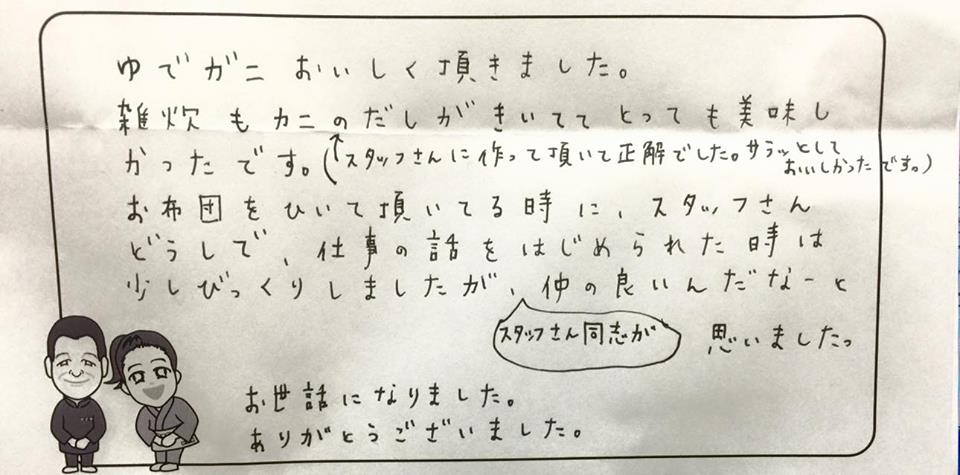 ゆでガニ おいしく頂きました。
雑炊もカニのだしがきいてて とっても美味し
かったです。(↑スタッフさんに作って頂いて正解でした。サラッとして
おいしかったです。)
お布団をひいて頂いてる時に、スタッフさん
どうしで、仕事の話をはじめられた時は
少しびっくりしましたが、仲の良いんだなーと
スタッフさん同志が 思いましたっ
お世話になりました。
ありがとうございました。